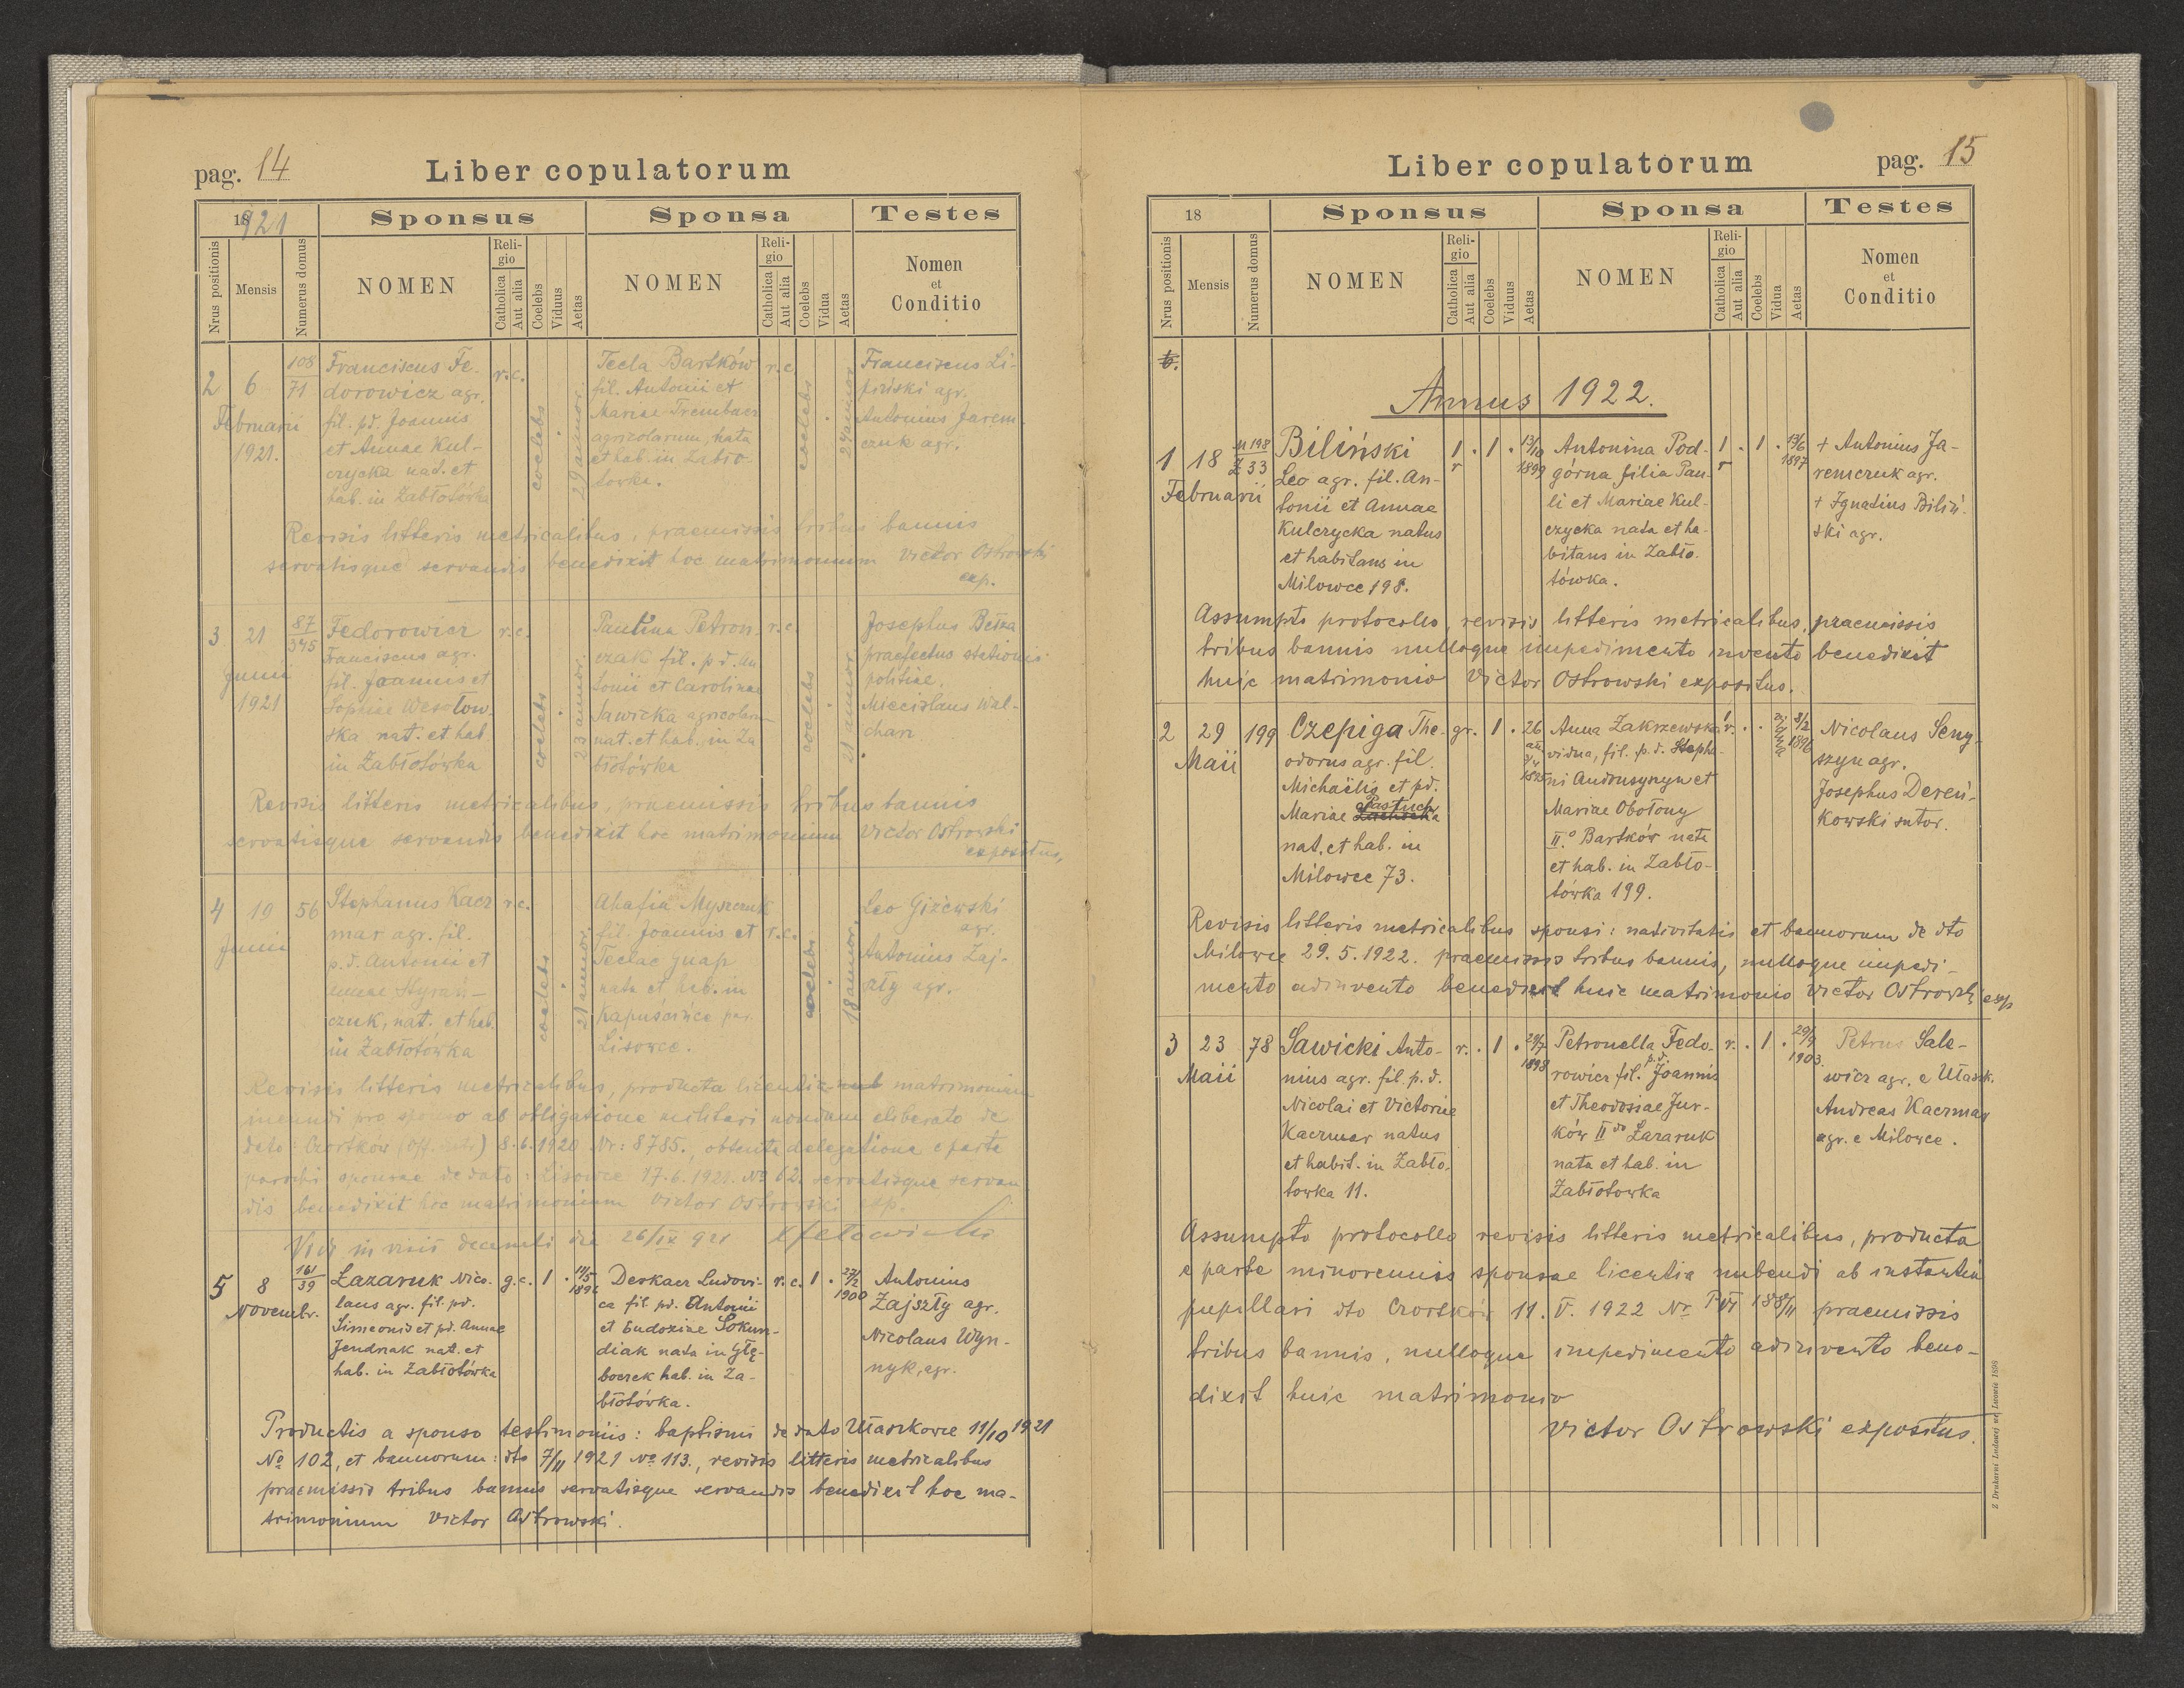 pag. 14
Liber copulatorum
18 921
Sponsus
Sponsa
Testes
Nrus positionis
Mensis
Numerus domus
NOMEN
Religio
Catholica
Aut alia
Coelebs
Viduus
Aetas
NOMEN
Religio
Catholica
Aut alia
Coelebs
Vidua
Aetas
Nomen
et
Conditio
2
6
Februarii
1921.
108
71
Franciscus Fe-
dorowicz agr.
fil. pd. Joannis
et Annae Kul-
czycka nat. et
hab. in Zabłotówka
r.c.
coelebs
29 annor.
Tecla Bartków
fil. Antonii et
Mariae Trembacz
agricolarum, nata
et hab. in Zabło-
towka.
r.c.
coelebs
24 annor.
Franciscus Li-
piński agr.
Antonius Jarem-
czuk agr.
Revisis litteris metricalibus, praemissis tribus bannis
servatisque servandis benedixit hoc matrimonium Victor Ostrowski
exp.
3
21
Junii
1921
87
345
Fedorowicz
Franciscus agr.
fil. Joannis et
Sophiae Wesołow-
ska nat. et hab.
in Zabłotówka
r.c.
coelebs
23 annor.
Paulina Petron-
czak fil. p.d. An-
tonii et Carolinae
Sawicka agricolarum
nat. et hab. in Za
błotówka
r.c.
coelebs
21 annor.
Josephus
praefectus stationis
politiae.
Miecislaus Wal-
chan
Revisis litteris metricalibus, praemissis tribus bannis
servatisque servandis benedixit hoc matrimonium Victor Ostrowski
expositus,
4
19
Junii
56
Stephanus Kacz
mar agr. fil.
p.d. Antonii et
czuk, nat. et hab.
in Zabłotówka
r.c.
coelebs
21 annor.
Ahafia Myszczuk
fil. Joannis et
Teclae
nata et hab. in
Kapuścińce par.
Lisowce.
r.c.
coelebs
18 annor.
Leo Giżewski
agr.
Antonius Zaj-
szły agr.
Revisis litteris metricalibus, producta licentia matrimonium
ineundi pro sponso ab obligatione militari nondum eliberato de
dato: Czortków 8.6.1920 Nr: 8785., obtenta delegatione e parte
parochi sponsae de dato: Lisowce 17.6.1921. No 62. servatisque servan
dis benedixit hoc matrimonium Victor Ostrowski exp.
Vidi in decanali die 26/IX 921
5
8
Novembr.
161
39
Łazaruk Nico-
laus agr. fil. pd.
Simeonis et pd. Annae
Jendrak nat. et
hab. in Zabłotówka
g.c.
1
Derkacz Ludovi-
ca fil. pd. Antonii
et Eudoxiae Sokun-
diak nata in Głę-
boczek hab. in Za-
błotówka.
r.c.
1
27/2
1900
Antonius
Zajszły agr.
Nicolaus Wyn-
nyk, agr.
Productis a sponso testimoniis: baptismi de dato Ułaszkowce 11/10 1921
No 102, et bannorum: dto 7/11 1921 No 113., revisis litteris metricalibus
praemissis tribus bannis servatisque servandis benedixit hoc ma-
trimonium Victor Ostrowski.
Liber copulatorum
pag. 15
18
Sponsus
Sponsa
Testes
Nrus positionis
Mensis
Numerus domus
NOMEN
Religio
Catholica
Aut alia
Coelebs
Viduus
Aetas
NOMEN
Religio
Catholica
Aut alia
Coelebs
Vidua
Aetas
Nomen
et
Conditio
Annus 1922.
1
18
Februarii
M 198
Z 33
Biliński
Leo agr. fil. An-
tonii et Annae
Kulczycka natus
et habitans in
Milowce 198.
1
r
1
13/10
1899
Antonina Pod-
górna filia Pau-
li et Mariae Kul-
czycka nata et ha-
bitans in Zabło-
tówka.
1
r
1
13/6
1897
+ Antonius Ja-
remczuk agr.
+ Ignatius Biliń-
ski agr.
Assumpto protocollo, revisis litteris metricalibus, praemissis
tribus bannis nulloque impedimento invento benedixit
huic matrimonio Victor Ostrowski expositus.
2
29
Maii
199
Czepiga The-
odorus agr. fil.
Michaëlis et pd.
Mariae Pastuch
nat. et hab. in
Milowce 73.
gr.
1
26
Anna Zakrzewska
vidua, fil. p.d. Stepha-
ni Andrusynyn et
Mariae Obotony
II.o Bartków nata
et hab. in Zabło-
tówka 199.
r.
8/2
1896
Nicolaus Seny-
szyn agr.
Josephus Dereń-
kowski sutor.
Revisis litteris metricalibus sponsi: nativitatis et bannorum de dto
Milowce 29.5.1922. praemissis tribus bannis, nulloque impedi-
mento adinvento benedixit huic matrimonio Victor Ostrowski exp
3
23
Maii
78
Sawicki Anto-
nius agr. fil. p.d.
Nicolai et Victoriae
Kaczmar natus
et habit. in Zabło-
towka 11.
r.
1
1898
Petronella Fedo-
rowicz fil. p.d. Joannis
et Theodosiae Jur-
ków II do Łazaruk
nata et hab. in
Zabłotowka
r.
1
29/9
1903.
Petrus Sale-
wicz agr. e Ułaszk.
Andreas Kaczmar
agr. e Milowce.
Assumpto protocollo revisis litteris metricalibus, producta
e parte minorennis sponsae licentia nubendi ab instantia
pupillari dto Czortków 11.V.1922 Nr praemissis
tribus bannis, nulloque impedimento adinvento bene-
dixit huic matrimonio
Victor Ostrowski expositus.
Z Drukarni Ludowej we Lwowie 1898